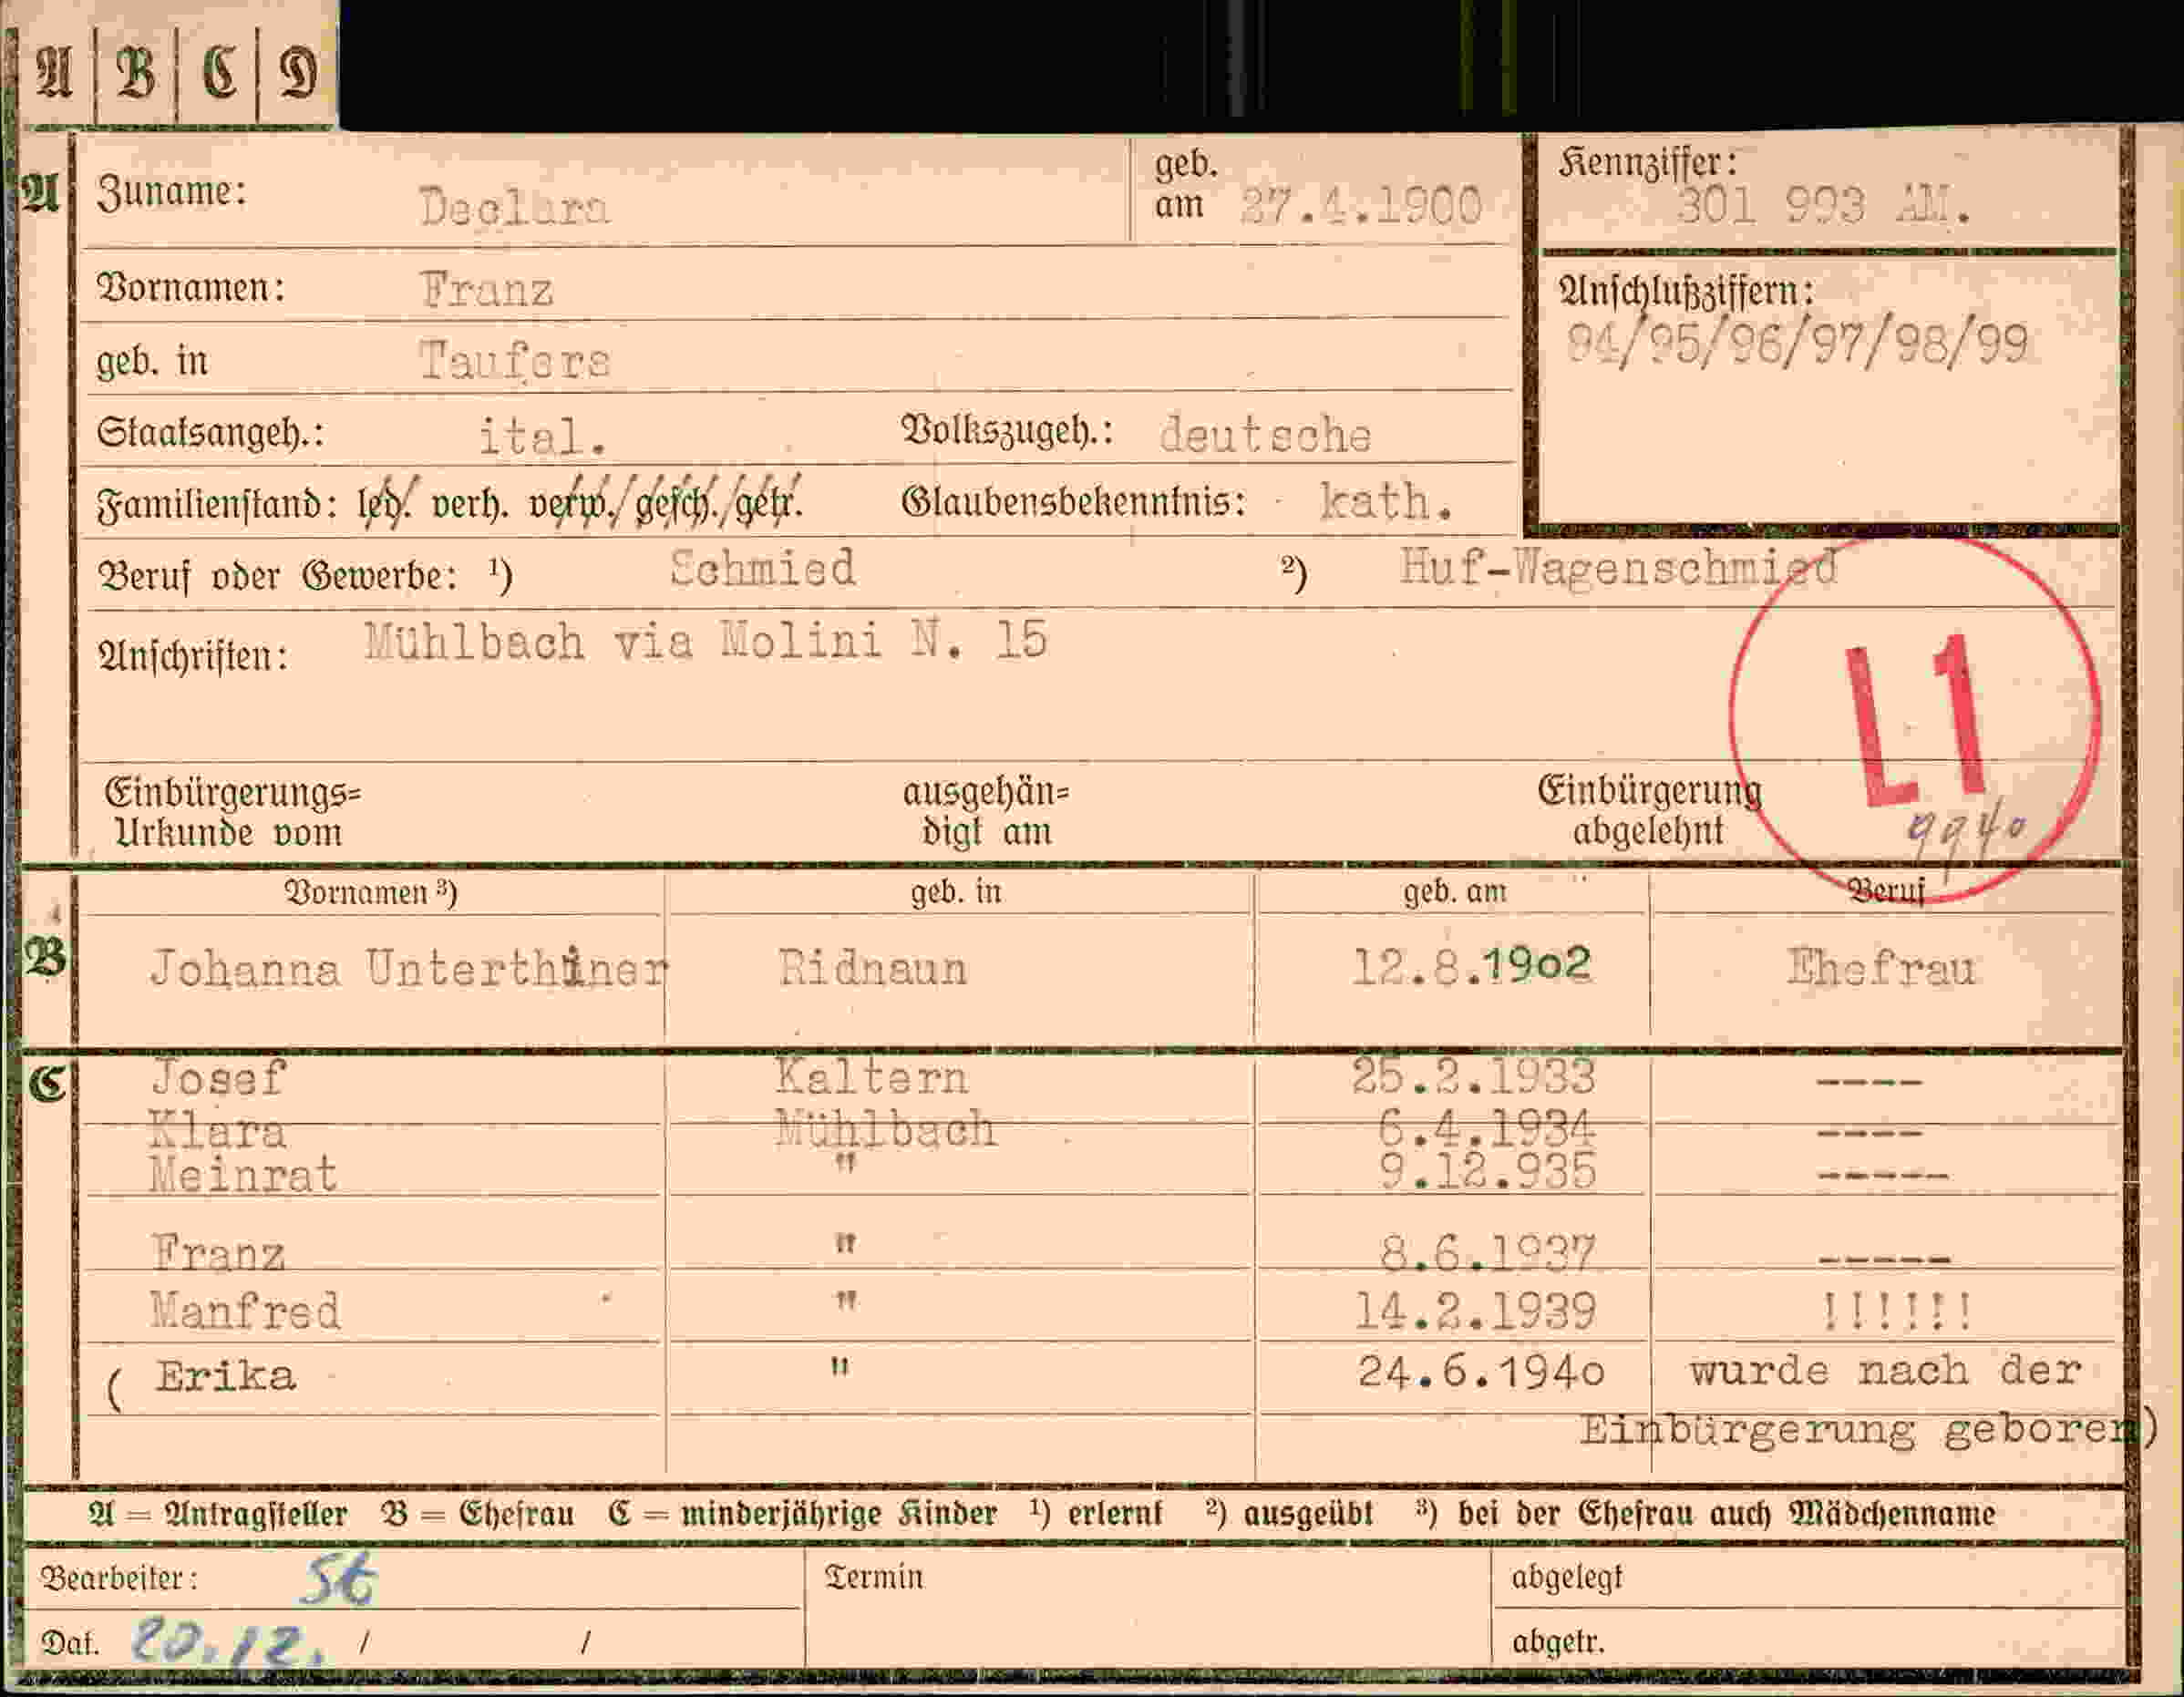 A B C D
A Zuname: Declara geb. am 27.4.1900 Kennziffer: 301 993 AM.
Vornamen: Franz Anschlußziffern:
94/95/96/97/98/99
geb. in Taufers
Staatsangeh.: ital. Volkszugeh.: deutsche
Familienstand: led. verh. verw./gesch./getr. Glaubensbekenntnis: kath.
Beruf oder Gewerbe: ¹) Schmied ²) Huf-Wagenschmied
Anschriften: Mühlbach via Molini N. 15
L1
Einbürgerungs= ausgehän= Einbürgerung
Urkunde vom digt am abgelehnt 9940
Vornamen ³) geb. in geb. am Beruf
B Johanna Unterthiner Ridnaun 12.8.1902 Ehefrau
C Josef Kaltern 25.2.1933 ----
Klara Mühlbach 6.4.1934 ----
Meinrat " 9.12.935 -----
Franz " 8.6.1937 -----
Manfred " 14.2.1939 !!!!!!
( Erika " 24.6.1940 wurde nach der
Einbürgerung geboren)
A = Antragsteller B = Ehefrau C = minderjährige Kinder ¹) erlernt ²) ausgeübt ³) bei der Ehefrau auch Mädchenname
Bearbeiter: St Termin abgelegt
Dat. 20.12. / / abgetr.